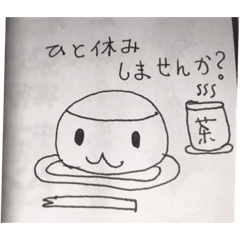 ひと休み
しませんか?
茶